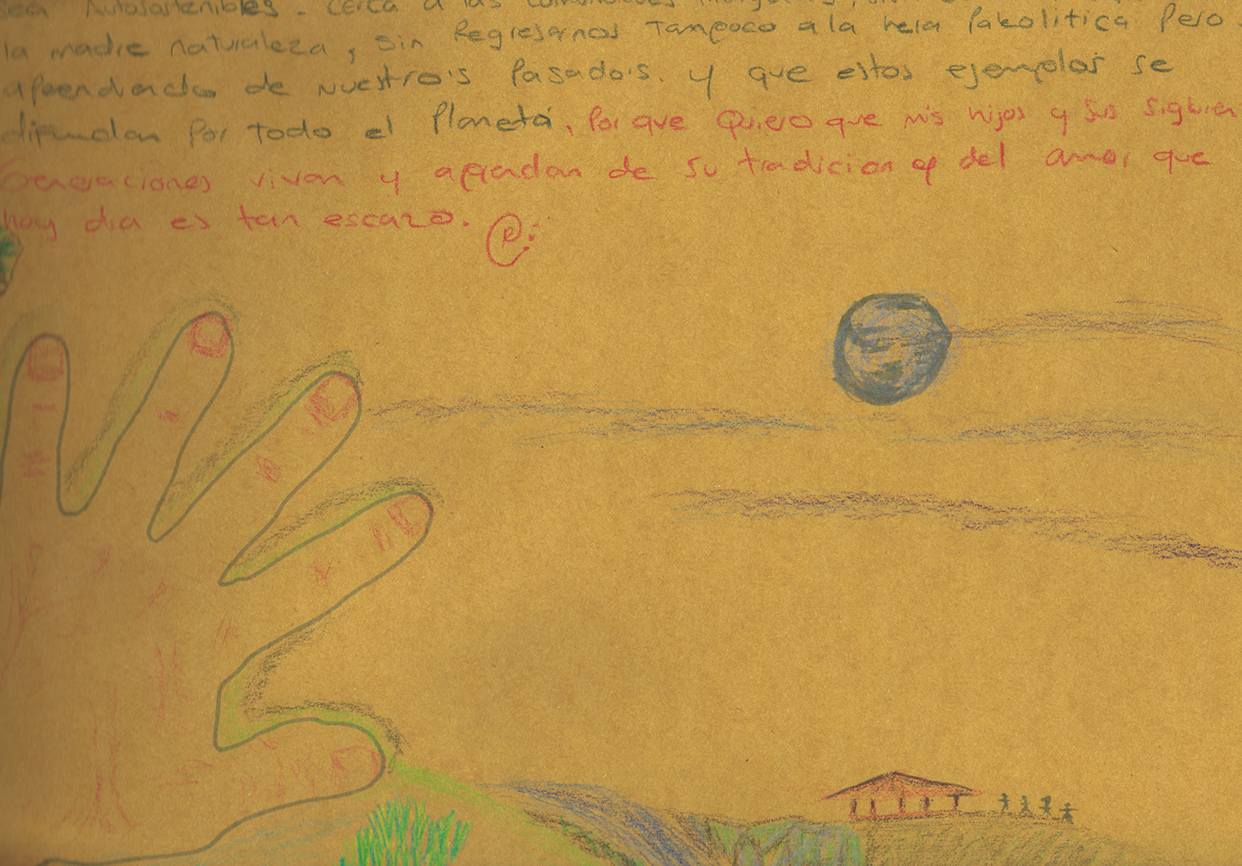 sea Autosostenibles. cerca a las comunidades
la madre naturaleza, sin Regresarnos Tampoco a la hera Paleolitica. Pero
aprendiendo de nuestro's Pasado's. y que estos ejemplos se
difundan por todo el Planeta, Por que Quiero que mis hijos y sus siguien
Generaciones vivan y aprendan de su tradicion y del amor que
hoy dia es tan escazo.